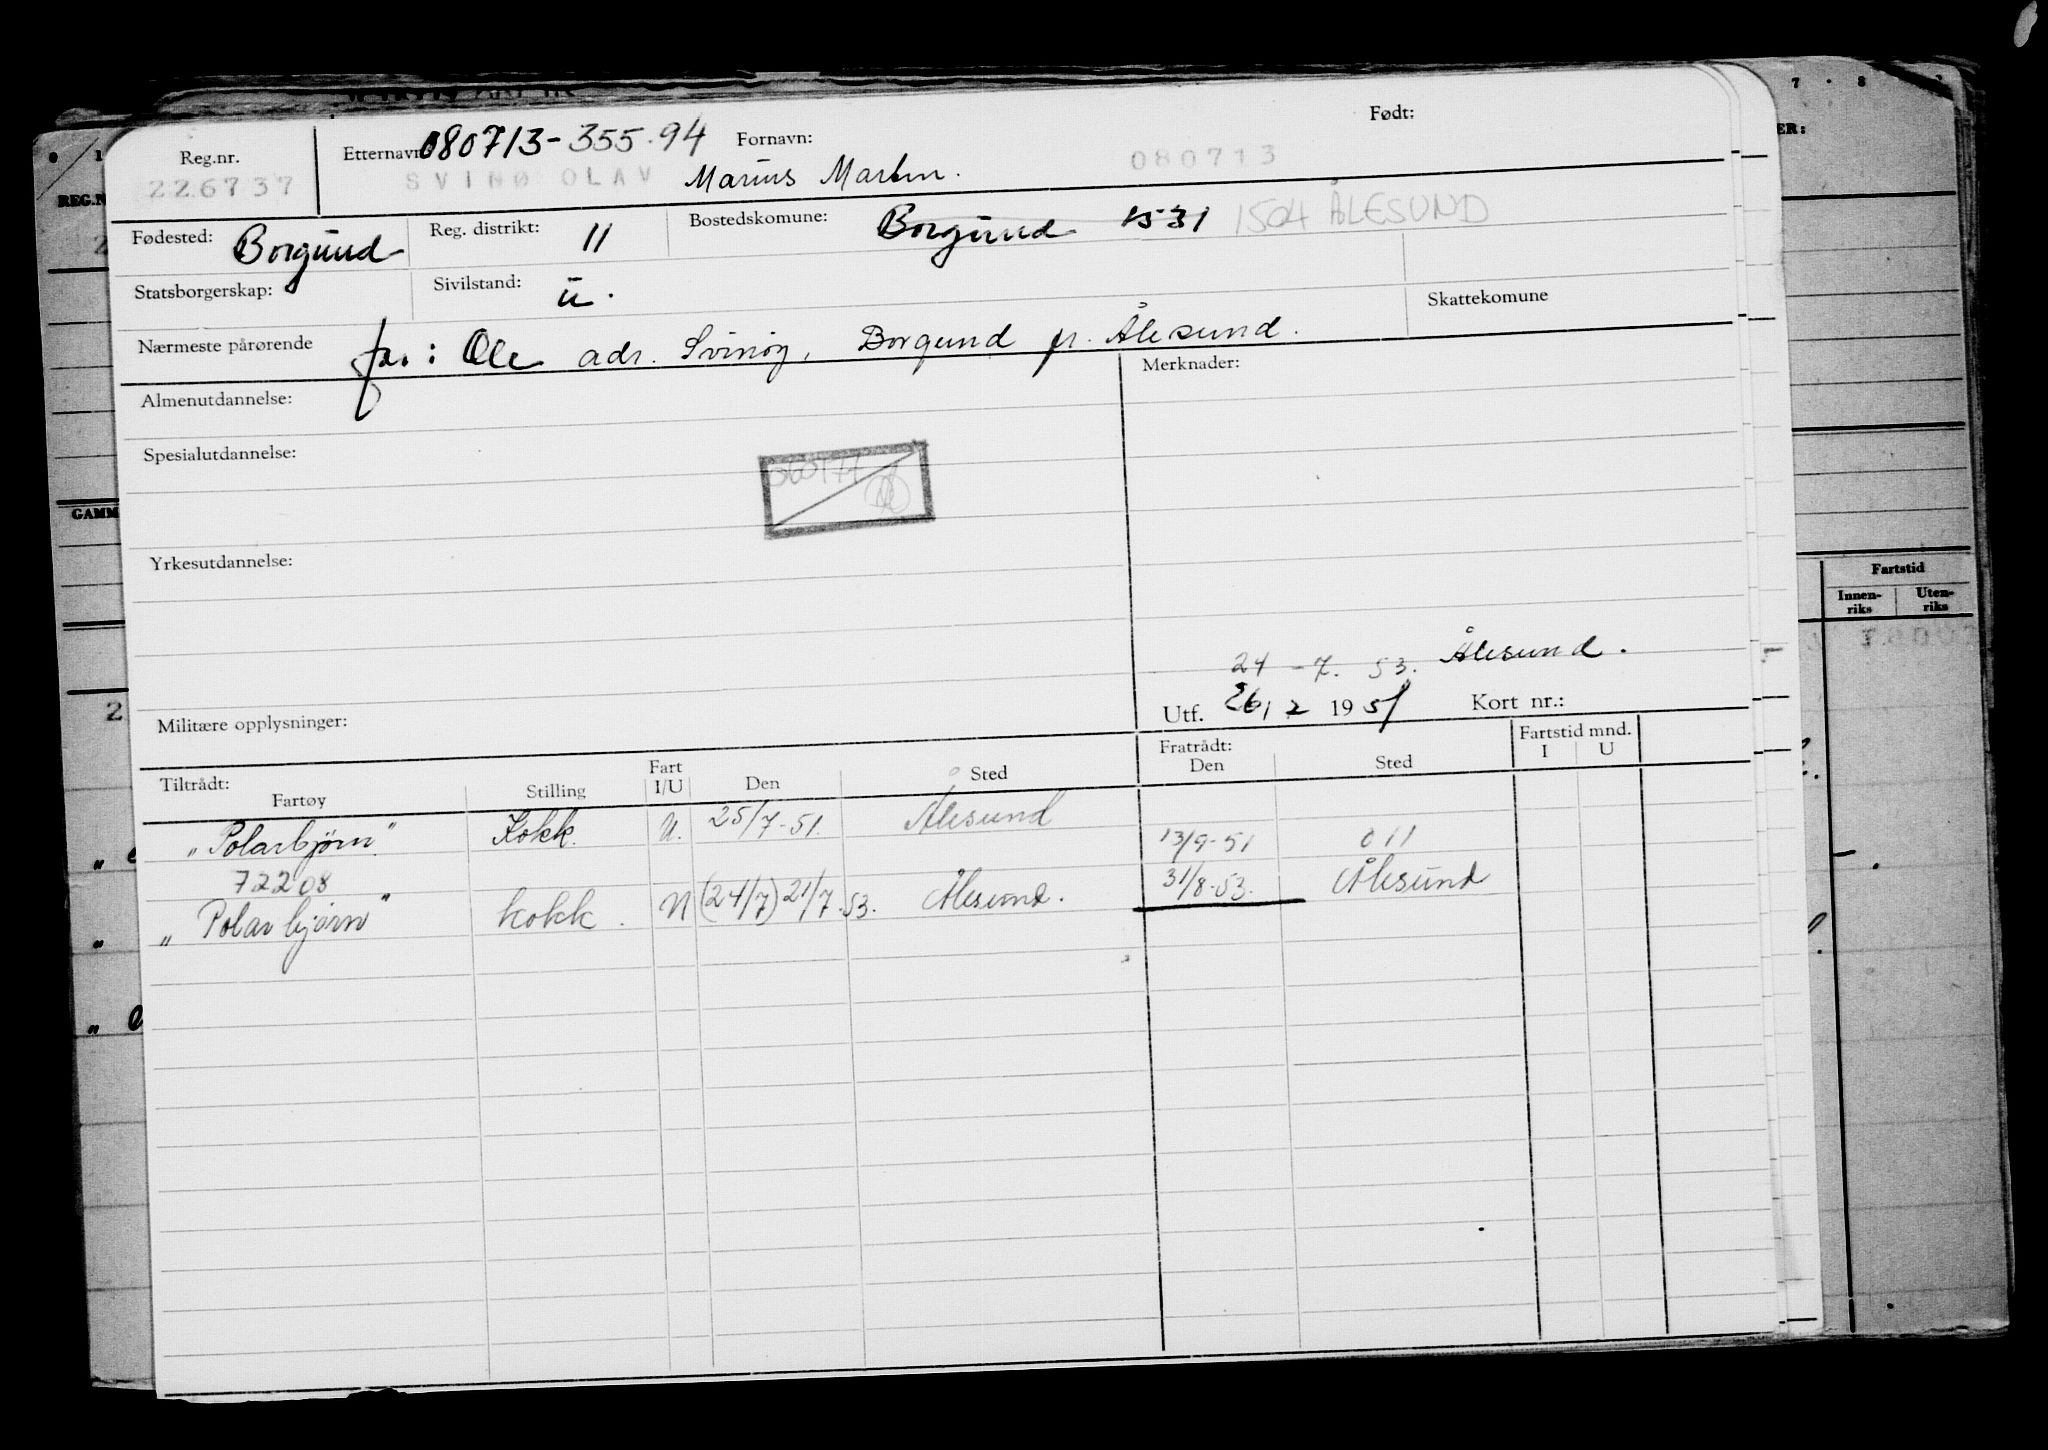 7 · 8
ER:
REG.N
GAMM
Fartstid
Innen-riks
Uten-riks
Reg.nr. 226737
Etternavn 080713-355.94
SVINØ OLAV
Fornavn:
Marius Martin.
Født:
080713
Fødested: Borgund
Reg. distrikt: 11
Bostedskomune: Borgund 1531 1504 ÅLESUND
Statsborgerskap:
Sivilstand: u.
Skattekomune
Nærmeste pårørende far: Ole adr. Svinøy, Borgund pr. Ålesund.
Almenutdannelse:
Merknader:
Spesialutdannelse:
Yrkesutdannelse:
24-7. 53. Ålesund.
Militære opplysninger:
Utf. 26/2 1951 Kort nr.:
Tiltrådt:
Fartøy Stilling Fart I/U Den Sted
Fratrådt:
Den Sted
Fartstid mnd.
I U
„Polarbjørn" Kokk. U. 25/7-51. Ålesund 13/9-51 011
72208
„Polarbjørn" kokk. N (24/7) 21/7.53. Ålesund. 31/8-53. Ålesund